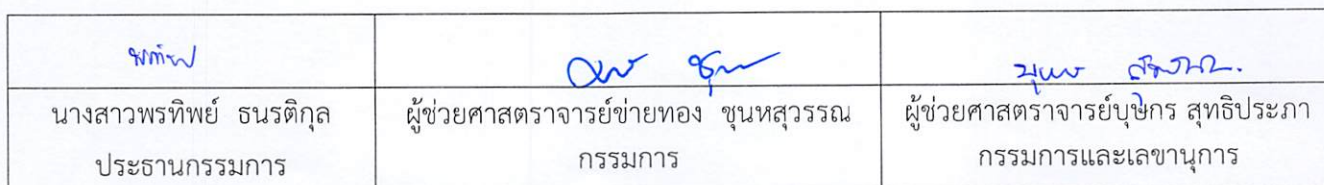 นางสาวพรทิพย์ ธนรติกุล
ประธานกรรมการ
ผู้ช่วยศาสตราจารย์ข่ายทอง ชุนหสุวรรณ
กรรมการ
ผู้ช่วยศาสตราจารย์บุษกร สุทธิประภา
กรรมการและเลขานุการ